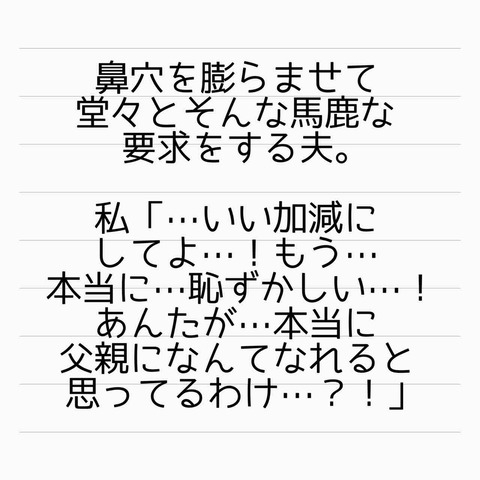 鼻穴を膨らませて
堂々とそんな馬鹿な
要求をする夫。
私「…いい加減に
してよ…！もう…
本当に…恥ずかしい…！
あんたが…本当に
父親になんてなれると
思ってるわけ…？！」